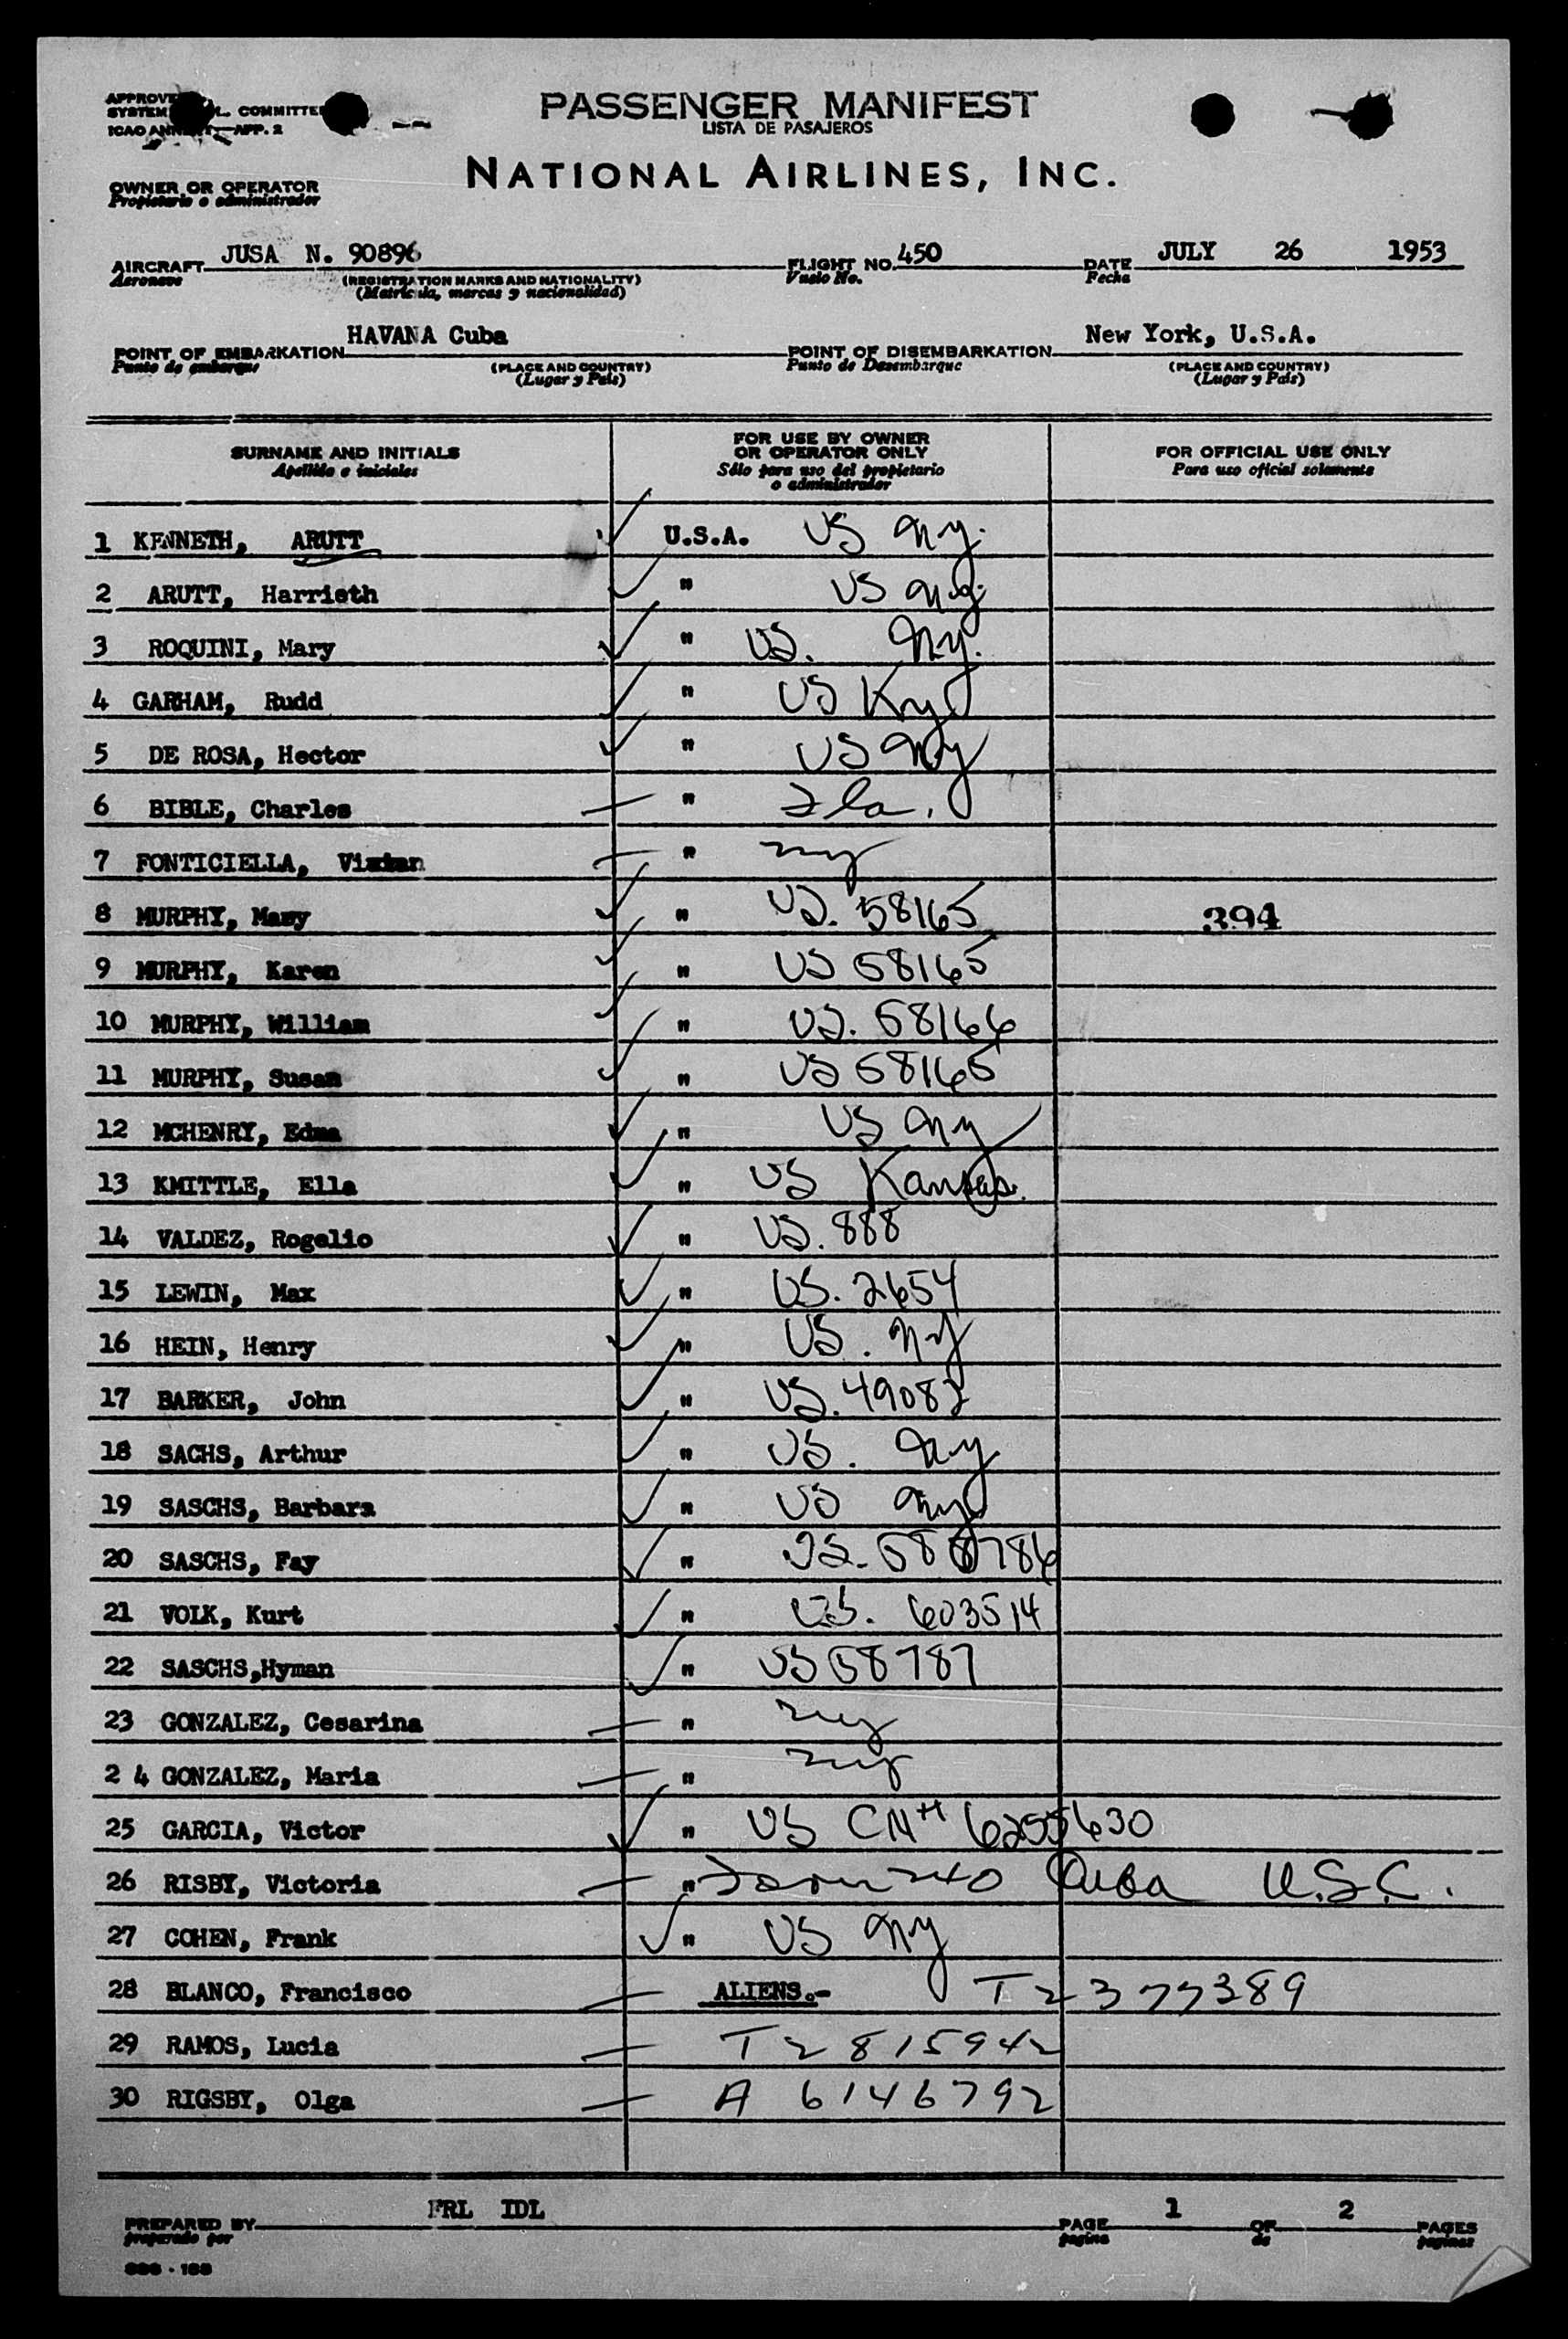 APPROVE
SYSTEM L. COMMITTE
ICAO ANNEX —APP. 2
PASSENGER MANIFEST
LISTA DE PASAJEROS
NATIONAL AIRLINES, INC.
OWNER OR OPERATOR
Propietario o administrador
AIRCRAFT JUSA N. 90896 FLIGHT NO. 450 DATE JULY 26 1953
Aeronave (REGISTRATION MARKS AND NATIONALITY) Vuelo No. Fecha
(Matricula, marcas y nacionalidad)
POINT OF EMBARKATION HAVANA Cuba POINT OF DISEMBARKATION New York, U.S.A.
Punto de embarque (PLACE AND COUNTRY) Punto de Desembarque (PLACE AND COUNTRY)
(Lugar y País) (Lugar y País)
SURNAME AND INITIALS FOR USE BY OWNER OR OPERATOR ONLY FOR OFFICIAL USE ONLY
Apellido e iniciales Sólo para uso del propietario o administrador Para uso oficial solamente
1 KENNETH, ARUTT U.S.A. US NY.
2 ARUTT, Harrieth " US NY.
3 ROQUINI, Mary " US. NY.
4 GARHAM, Rudd " US Ky
5 DE ROSA, Hector " US NY
6 BIBLE, Charles " Fla.
7 FONTICIELLA, Vivian " ny
8 MURPHY, Mary " US. 58165 394
9 MURPHY, Karen " US 58165
10 MURPHY, William " US. 58166
11 MURPHY, Susan " US 58165
12 MCHENRY, Edna " US NY
13 KMITTLE, Ella " US Kansas.
14 VALDEZ, Rogelio " US. 888
15 LEWIN, Max " US. 2654
16 HEIN, Henry " US. NY
17 BARKER, John " US. 49082
18 SACHS, Arthur " US. NY
19 SASCHS, Barbara " US NY
20 SASCHS, Fay " US.
21 VOLK, Kurt " US. 603514
22 SASCHS,Hyman " US 58787
23 GONZALEZ, Cesarina " ny
24 GONZALEZ, Maria " ny
25 GARCIA, Victor " US CN# 6255630
26 RISBY, Victoria " Form 240 Cuba U.S.C.
27 COHEN, Frank " US NY
28 BLANCO, Francisco ALIENS.- T2377389
29 RAMOS, Lucia T2815942
30 RIGSBY, Olga A 6146792
PREPARED BY FRL IDL PAGE 1 OF 2 PAGES
preparado por pagina de paginas